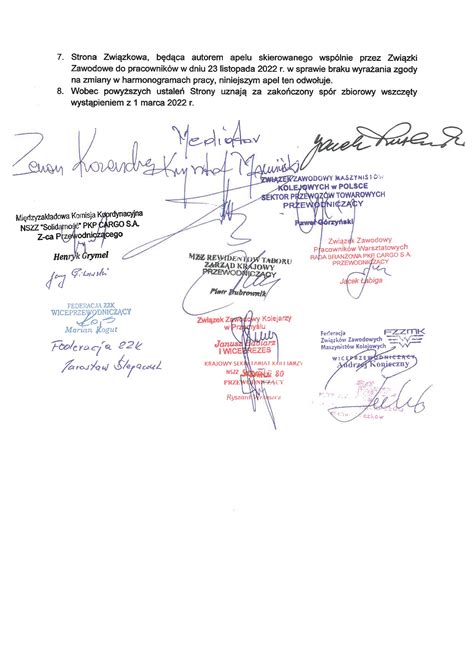 7. Strona Związkowa, będąca autorem apelu skierowanego wspólnie przez Związki
Zawodowe do pracowników w dniu 23 listopada 2022 r. w sprawie braku wyrażania zgody
na zmiany w harmonogramach pracy, niniejszym apel ten odwołuje.
8. Wobec powyższych ustaleń Strony uznają za zakończony spór zbiorowy wszczęty
wystąpieniem z 1 marca 2022 r.
Mediator
Zenon Kozendra Krzysztof
ZWIĄZEK ZAWODOWY MASZYNISTÓW
KOLEJOWYCH w POLSCE
SEKTOR PRZEWOZÓW TOWAROWYCH
PRZEWODNICZĄCY
Paweł Górzyński
Międzyzakładowa Komisja Koordynacyjna
NSZZ "Solidarność" PKP CARGO S.A.
Z-ca Przewodniczącego
Henryk Grymel
Związek Zawodowy
Pracowników Warsztatowych
RADA BRANŻOWA PKP CARGO S.A.
PRZEWODNICZĄCY
Jacek Łabiga
MZZ REWIDENTÓW TABORU
ZARZĄD KRAJOWY
PRZEWODNICZĄCY
Piotr Dubrownik
FEDERACJA ZZK
WICEPRZEWODNICZĄCY
Marian Kogut
Federacja ZZK
Jarosław Ślepaczuk
Związek Zawodowy Kolejarzy
w Przemyślu
Janusz
I WICEPREZES
KRAJOWY SEKRETARIAT KOLEJARZY
NSZZ 80
PRZEWODNICZĄCY
Ryszard
Federacja
Związków Zawodowych
Maszynistów Kolejowych
FZZMK
WICEPRZEWODNICZĄCY
Andrzej Konieczny